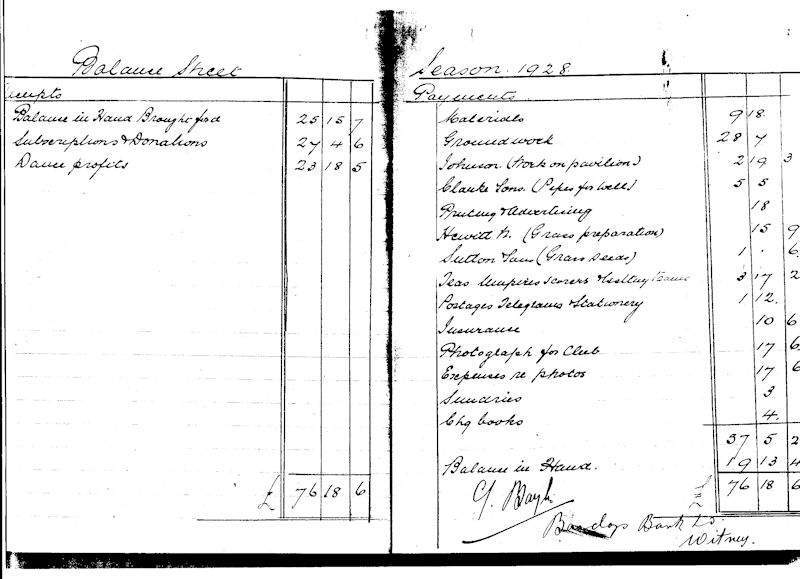 Balance Sheet
Receipts
Balance in Hand Brought fod 25 15 7
Subscriptions & Donations 27 4 6
Dance profits 23 18 5
£ 76 18 6
Season. 1928
Payments.
Materials 9 18
Groundwork 28 7
Johnson (Work on pavilion) 2 19 3
Clarke Sons. (Pipes for well) 5 5
Printing & Advertising 18
Hewitt (Grass preparation) 15 9
Sutton Sons (Grass seeds) 1 . 6
Teas Umpires scorers & 3 17 2
Postages Telegrams & Stationery 1 12.
Insurance 10 6
Photograph for Club 17 6
Expenses re photos 17 6
Sundries 3
Chq books 4.
57 5 2
Balance in Hand. 19 13 4
76 18 6
Barclays Bank Ld.
Witney.